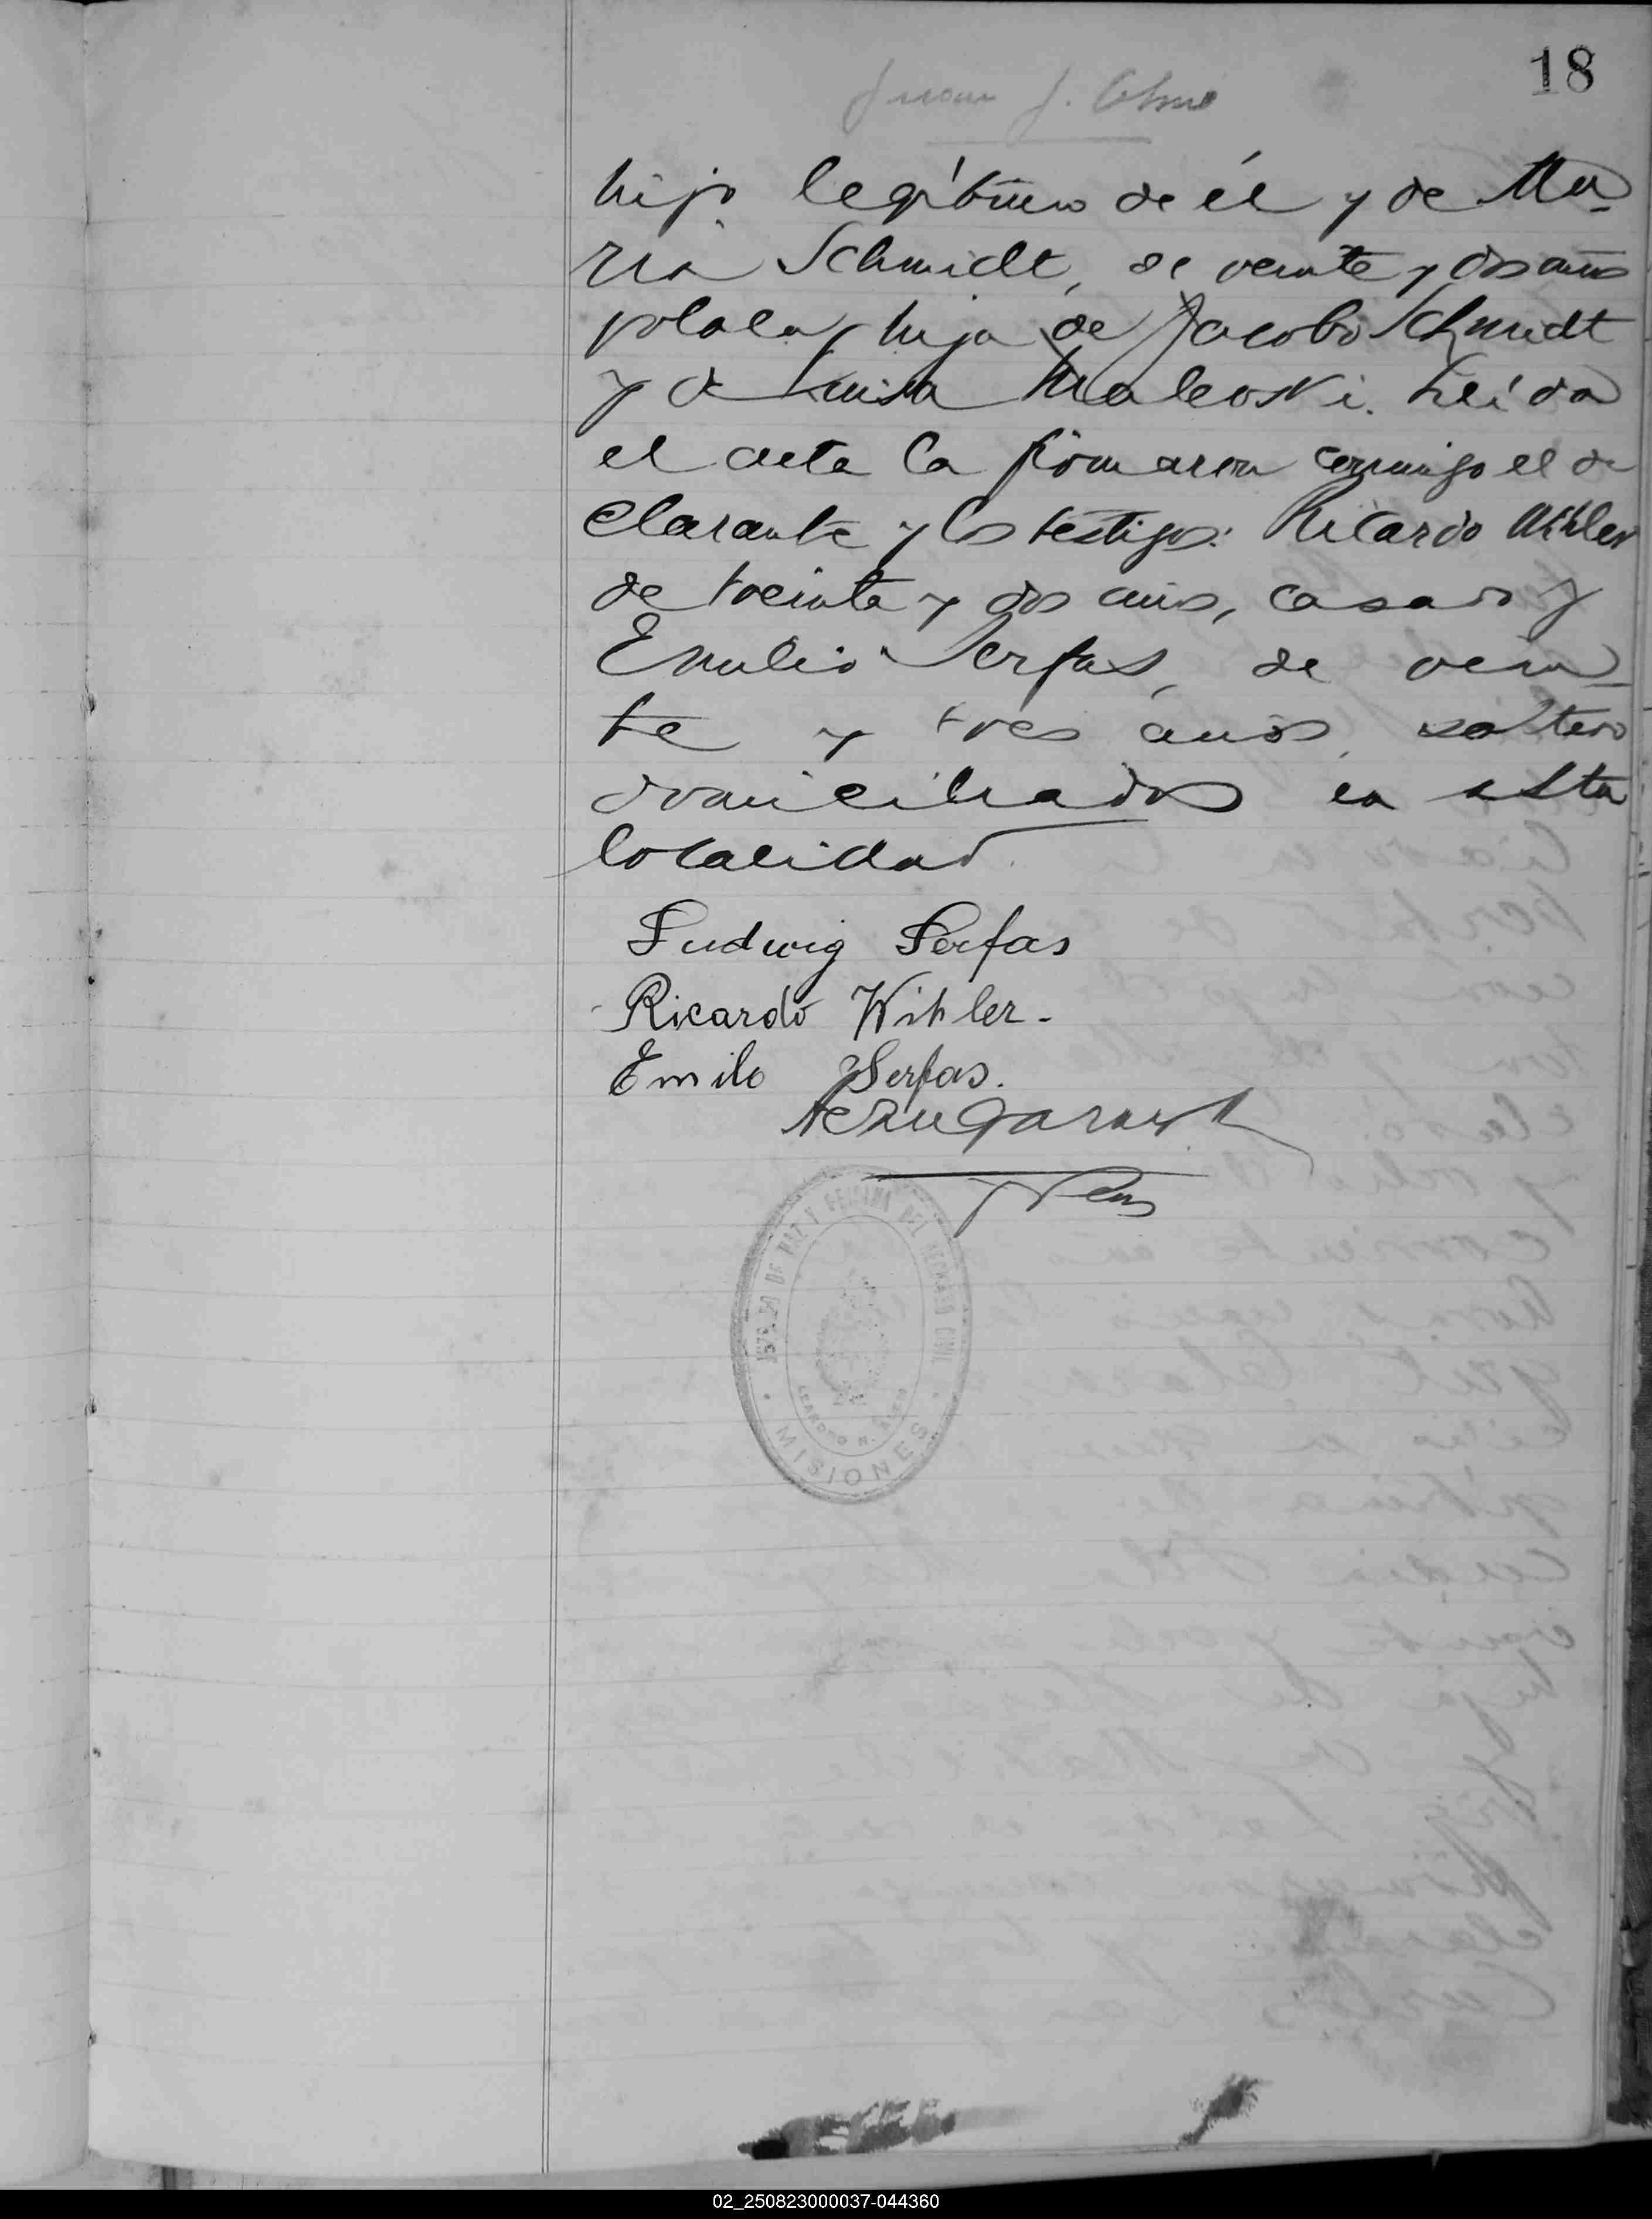 18
Juan J.
hijo legítimo de él y de Ma-
ria Schmidt, de veinte y dos años
polaca, hija de Jacobo Schmidt
y de Luisa Maleoski. Leída
el acta la firmaron conmigo el de
clarante y los testigos: Ricardo Wihler
de treinta y dos años, casado y
Emilio Serfas, de vein-
te y tres años, soltero
domiciliados en esta
localidad.
Ludwig Serfas
Ricardo Wihler.
Emilo Serfas.
JUZGADO DE PAZ Y OFICINA DEL REGISTRO CIVIL
LEANDRO N. ALEM
MISIONES
02_250823000037-044360